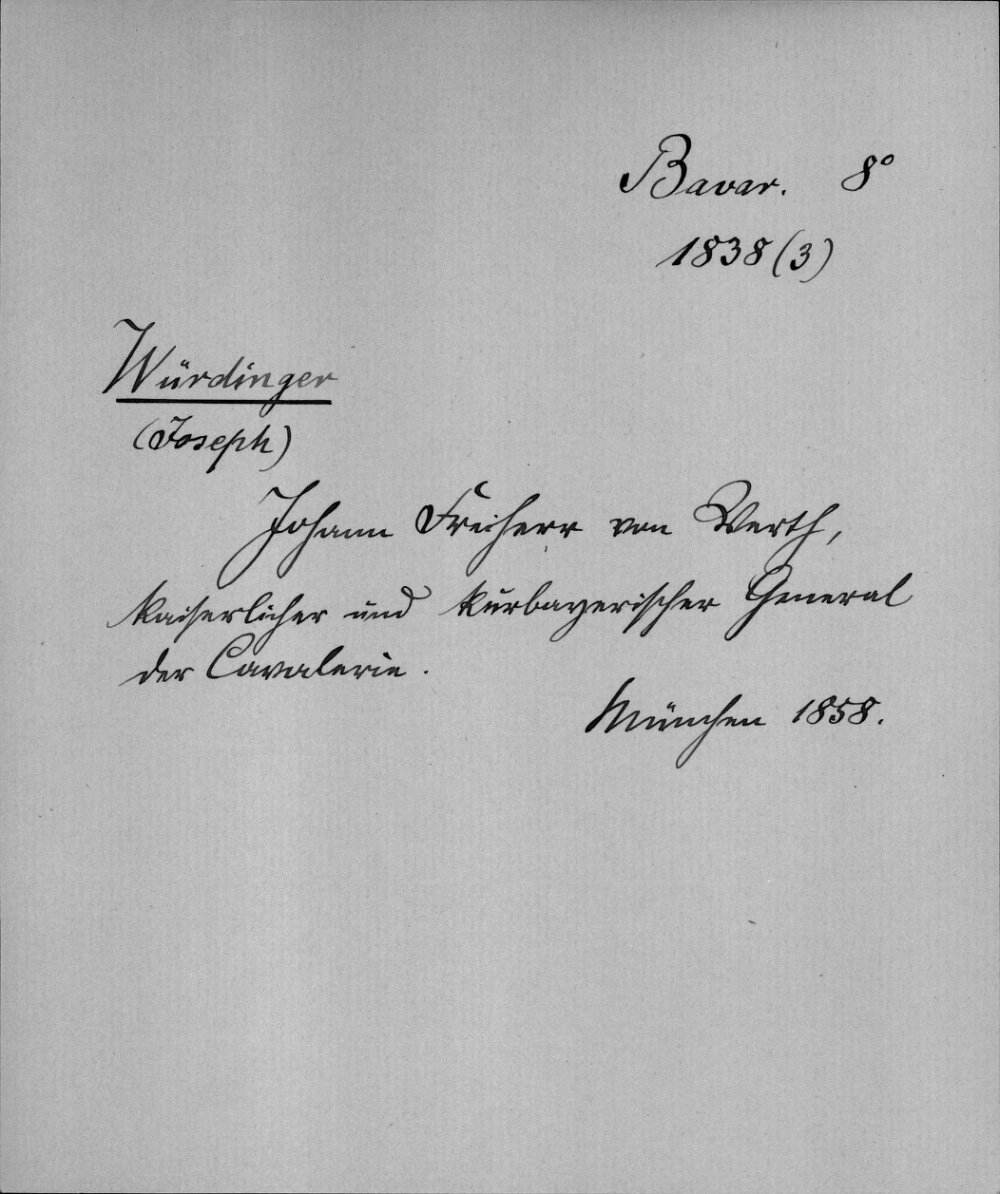 Bavar. 8°
1838 (3)
Würdinger
(Joseph)
Johann Freiherr von Werth,
kaiserlicher und kurbayerischer General
der Cavalerie.
München 1858.